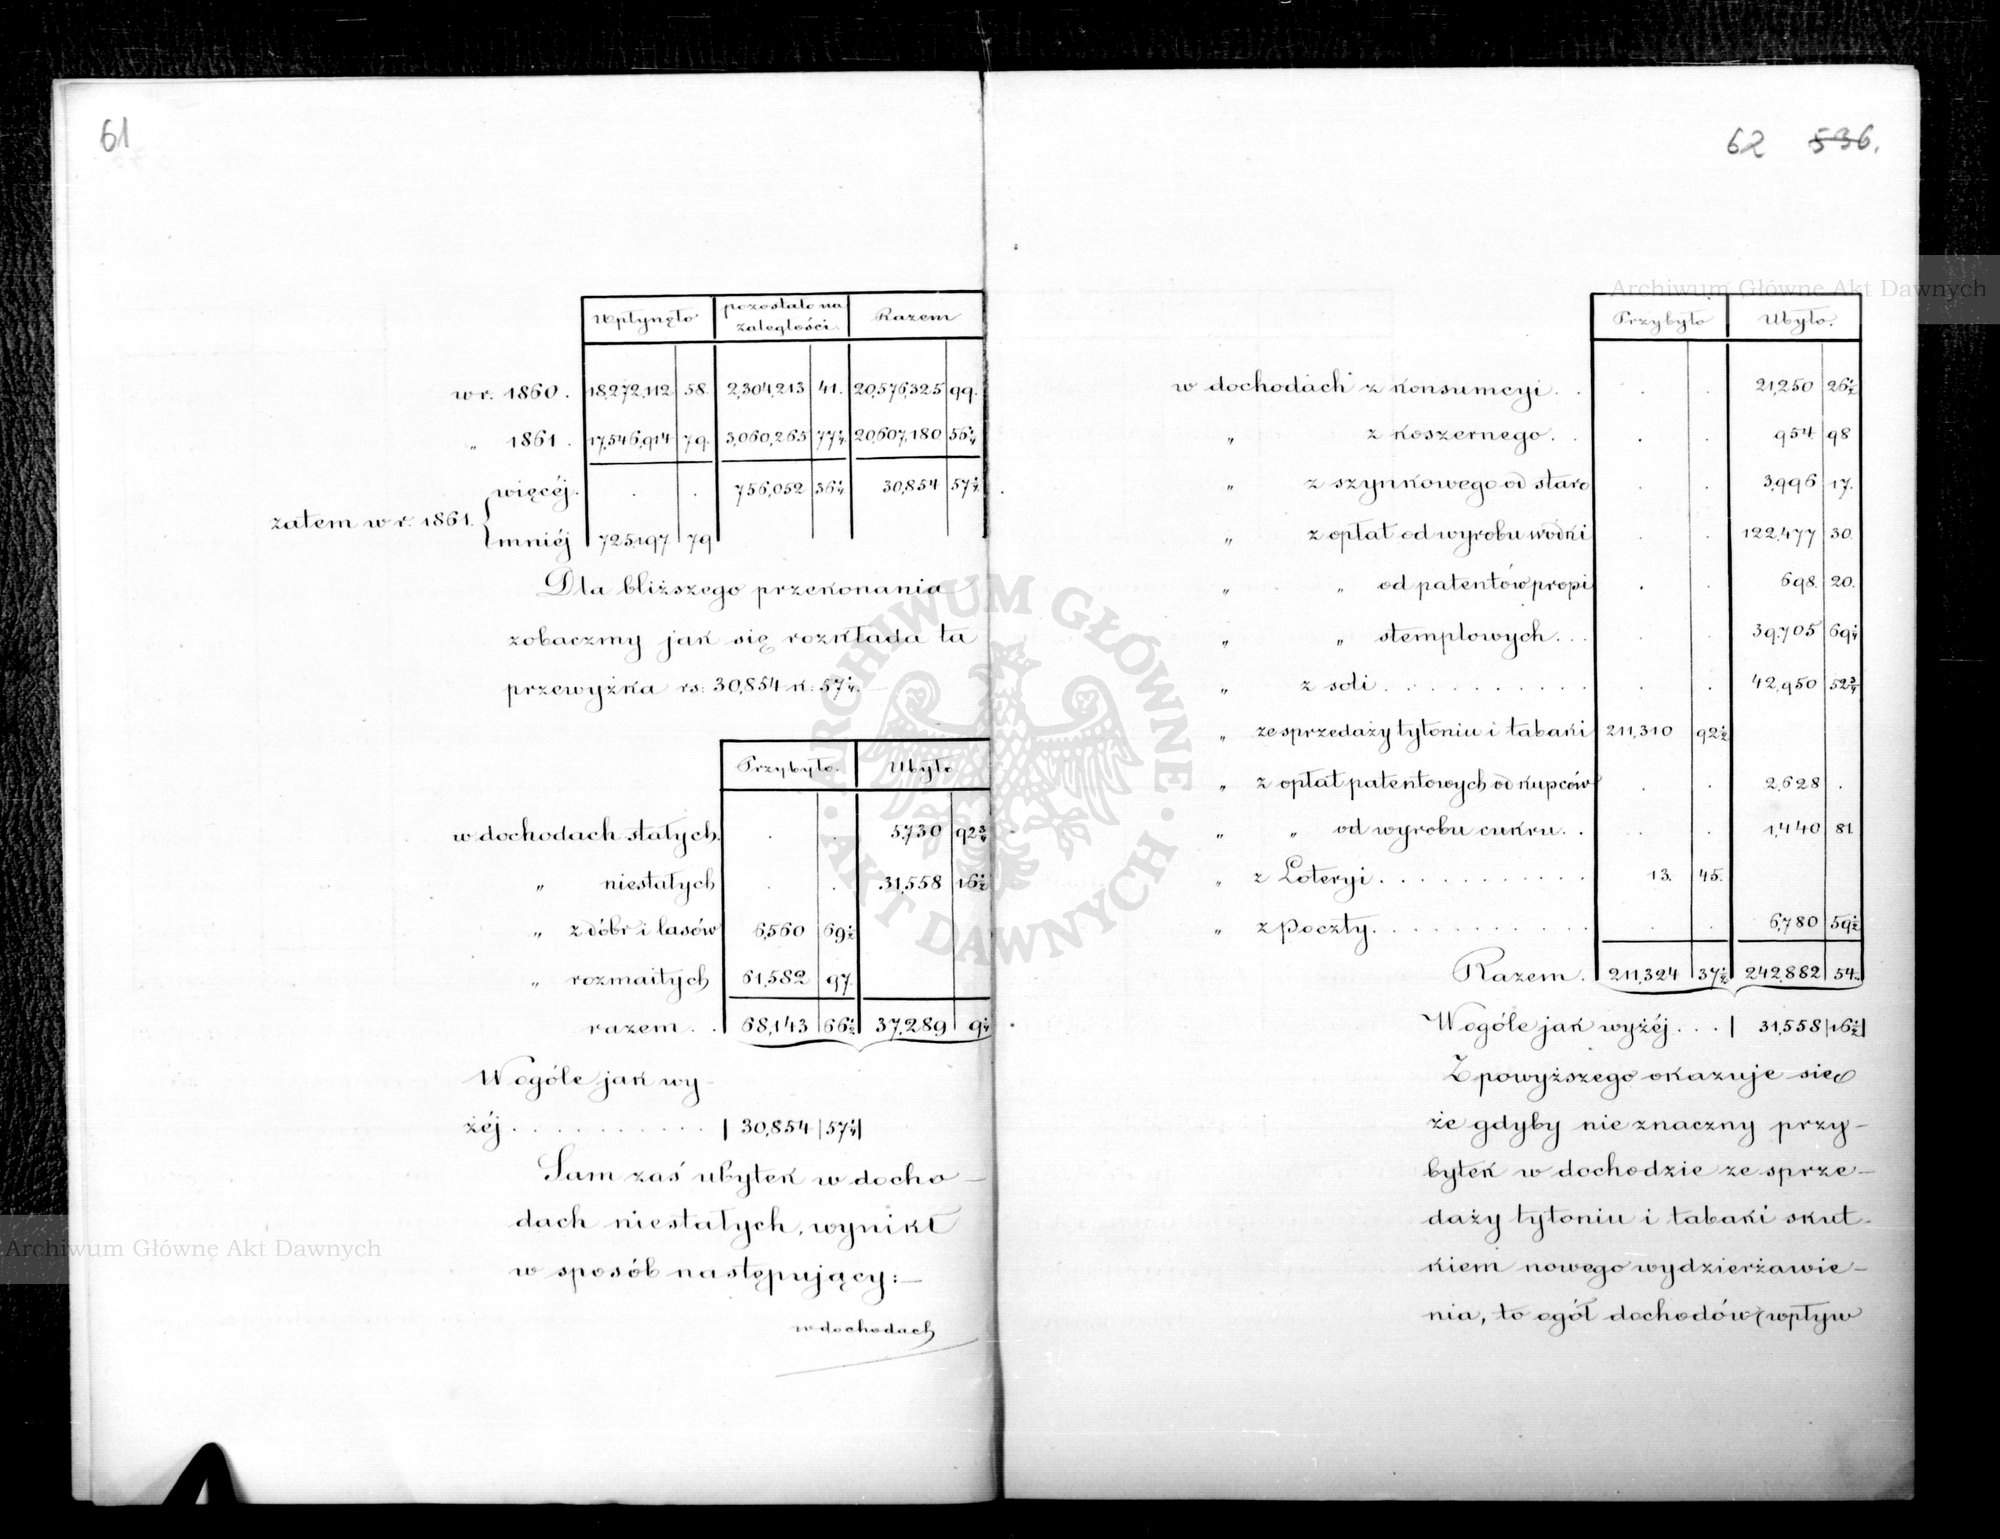 61
Wpłynęło pozostało na zaległości Razem
w r. 1860. 18,272,112 58. 2,304,213 41. 20,576,325 99.
„ 1861. 17,546,914 79. 3,060,265 77¼ 20,607,180 56¼
zatem w r. 1861. więcéj. . . 756,052 36¼ 30,854 57¼
mniéj 725,197 79
Dla bliższego przekonania
zobaczmy jak się rozkłada ta
przewyżka rs: 30,854 k: 57¼. —
Przybyło. Ubyło
w dochodach stałych. . . 5,730 92¾
„ niestałych . . 31,558 16½
„ z dóbr i lasów 6,560 69½
„ rozmaitych 61,582 97.
razem . . 68,143 66½ 37,289 9¼
W ogóle jak wy-
żéj . . . . . . . . . . 30,854 57¼
Sam zaś ubytek w docho-
dach niestałych, wynikł
w sposób następujący: —
w dochodach
62 536.
Przybyło Ubyło.
w dochodach z konsumcyi . . . . 21,250 26½
„ z koszernego. . . . 954 98
„ z szynkowego od staro . . 3,996 17.
„ z opłat od wyrobu wódki . . 122,477 30.
„ „ od patentów propi . . 698. 20.
„ „ stemplowych . . . . . 39,705 69¼
„ z soli . . . . . . . . . . . . 42,950 52¾
„ ze sprzedaży tytoniu i tabaki 211,310 92½
„ z opłat patentowych od kupców . . 2,628 .
„ „ od wyrobu cukru. . . . 1,440 81
„ z Loteryi . . . . . . . . . . 13. 45.
„ z Poczty. . . . . . . . . . . . 6,780 59½
Razem . 211,324 37½ 242,882 54.
W ogóle jak wyżéj . . . 31,558 16½
Z powyższego okazuje się
że gdyby nie znaczny przy-
bytek w dochodzie ze sprze-
daży tytoniu i tabaki skut-
kiem nowego wydzierżawie-
nia, to ogół dochodów (wpływ
Archiwum Główne Akt Dawnych
Archiwum Główne Akt Dawnych
ARCHIWUM GŁÓWNE · AKT DAWNYCH ·